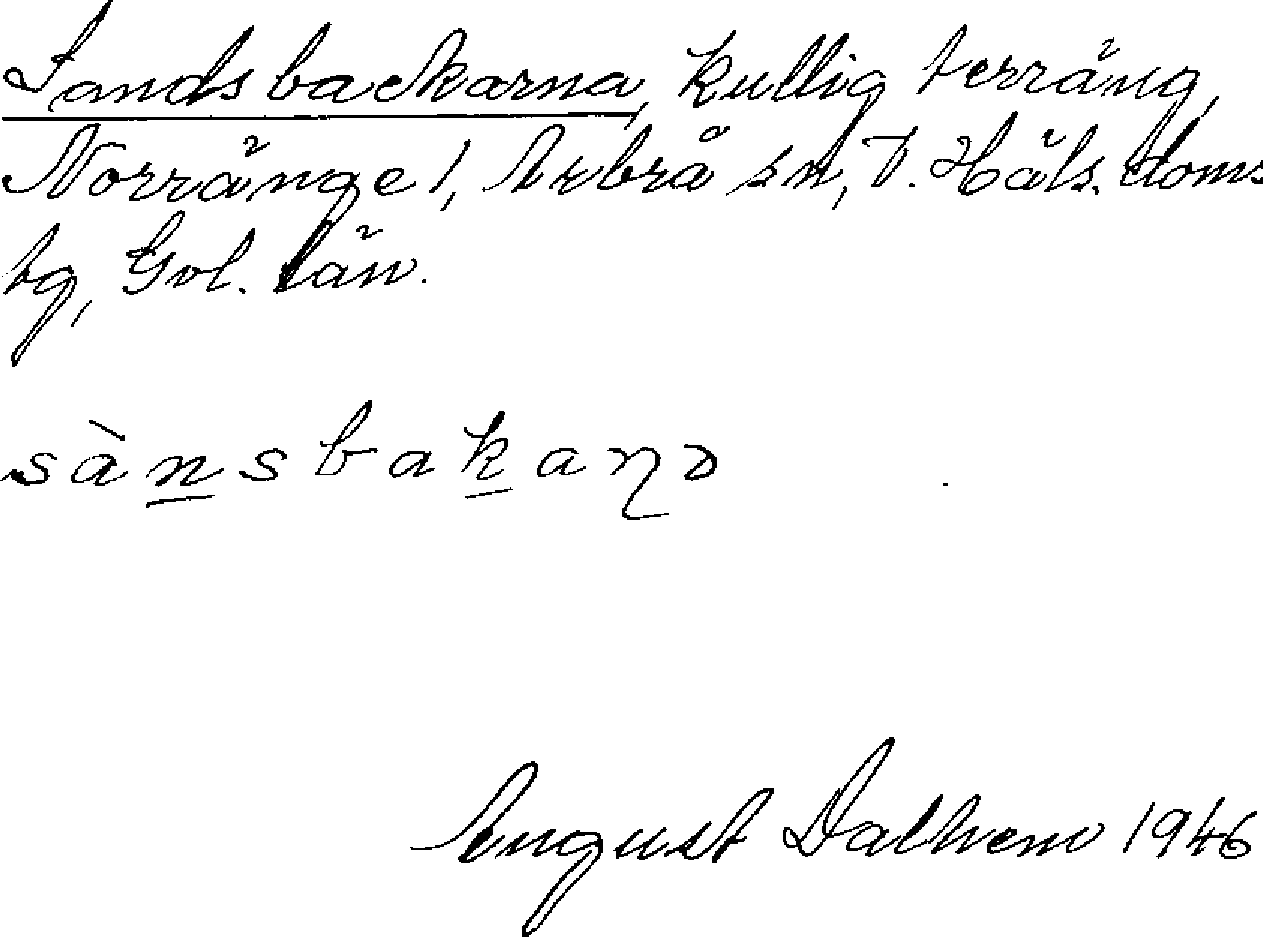 Sandsbackarna, kullig terräng,
Norränge 1, Arbrå sn, V. Häls. doms
tg, Gvl. län.
sànsbakaɳɔ
August Dalhem 1946